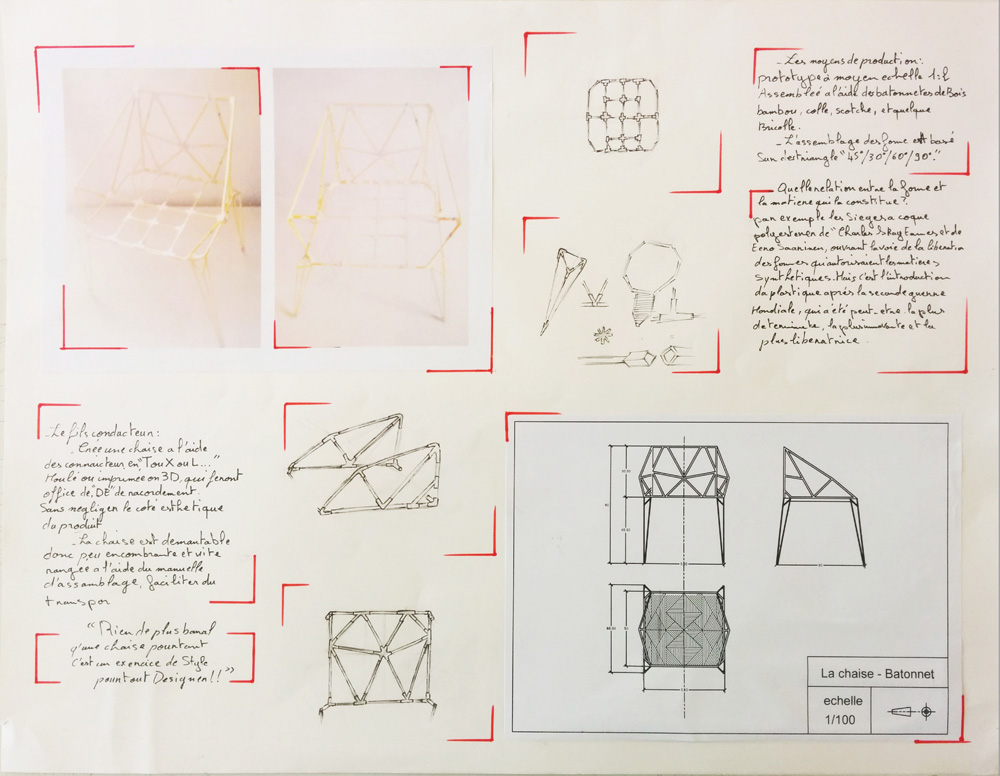 - Les moyens de production:
prototype a moyen echelle 1:2
Assembleé a l'aide des batonnetes de Bois
bambou, colle, scotche, et quelque
Bricolle.
- L'assemblage des forme est basé
Sur des triangle "45°/30°/60°/90°."
Quelle relation entre la forme et
la matiere qui la constitue?
par exemple les Sieges a coque
polyester de "Charles & Ray Eames, et de
Eero Saarinen, ouvrant la voie de la liberation
des formes qu'autorisaient les matieres
Synthétiques. Mais c'est l'introduction
du plastique après la seconde guerre
Mondiale, qui a été peut-etre la plus
determinate, la plus innovante et la
plus liberatrice.
- Le fils conducteur:
Crée une chaise a l'aide
des connecteur en "T ou X ou L..."
Moulé ou imprimee en 3D, qui feront
office de "DE" de racordement.
Sans negliger le coté esthetique
du produit
- La chaise est demantable
donc peu encombrante et vite
rangée a l'aide du manuelle
d'assamblage, faciliter du
transpor
"Rien de plus banal
q'une chaise pourtant
C'est un exercice de Style
pour tout Designer!!"
La chaise - Batonnet
echelle
1/100